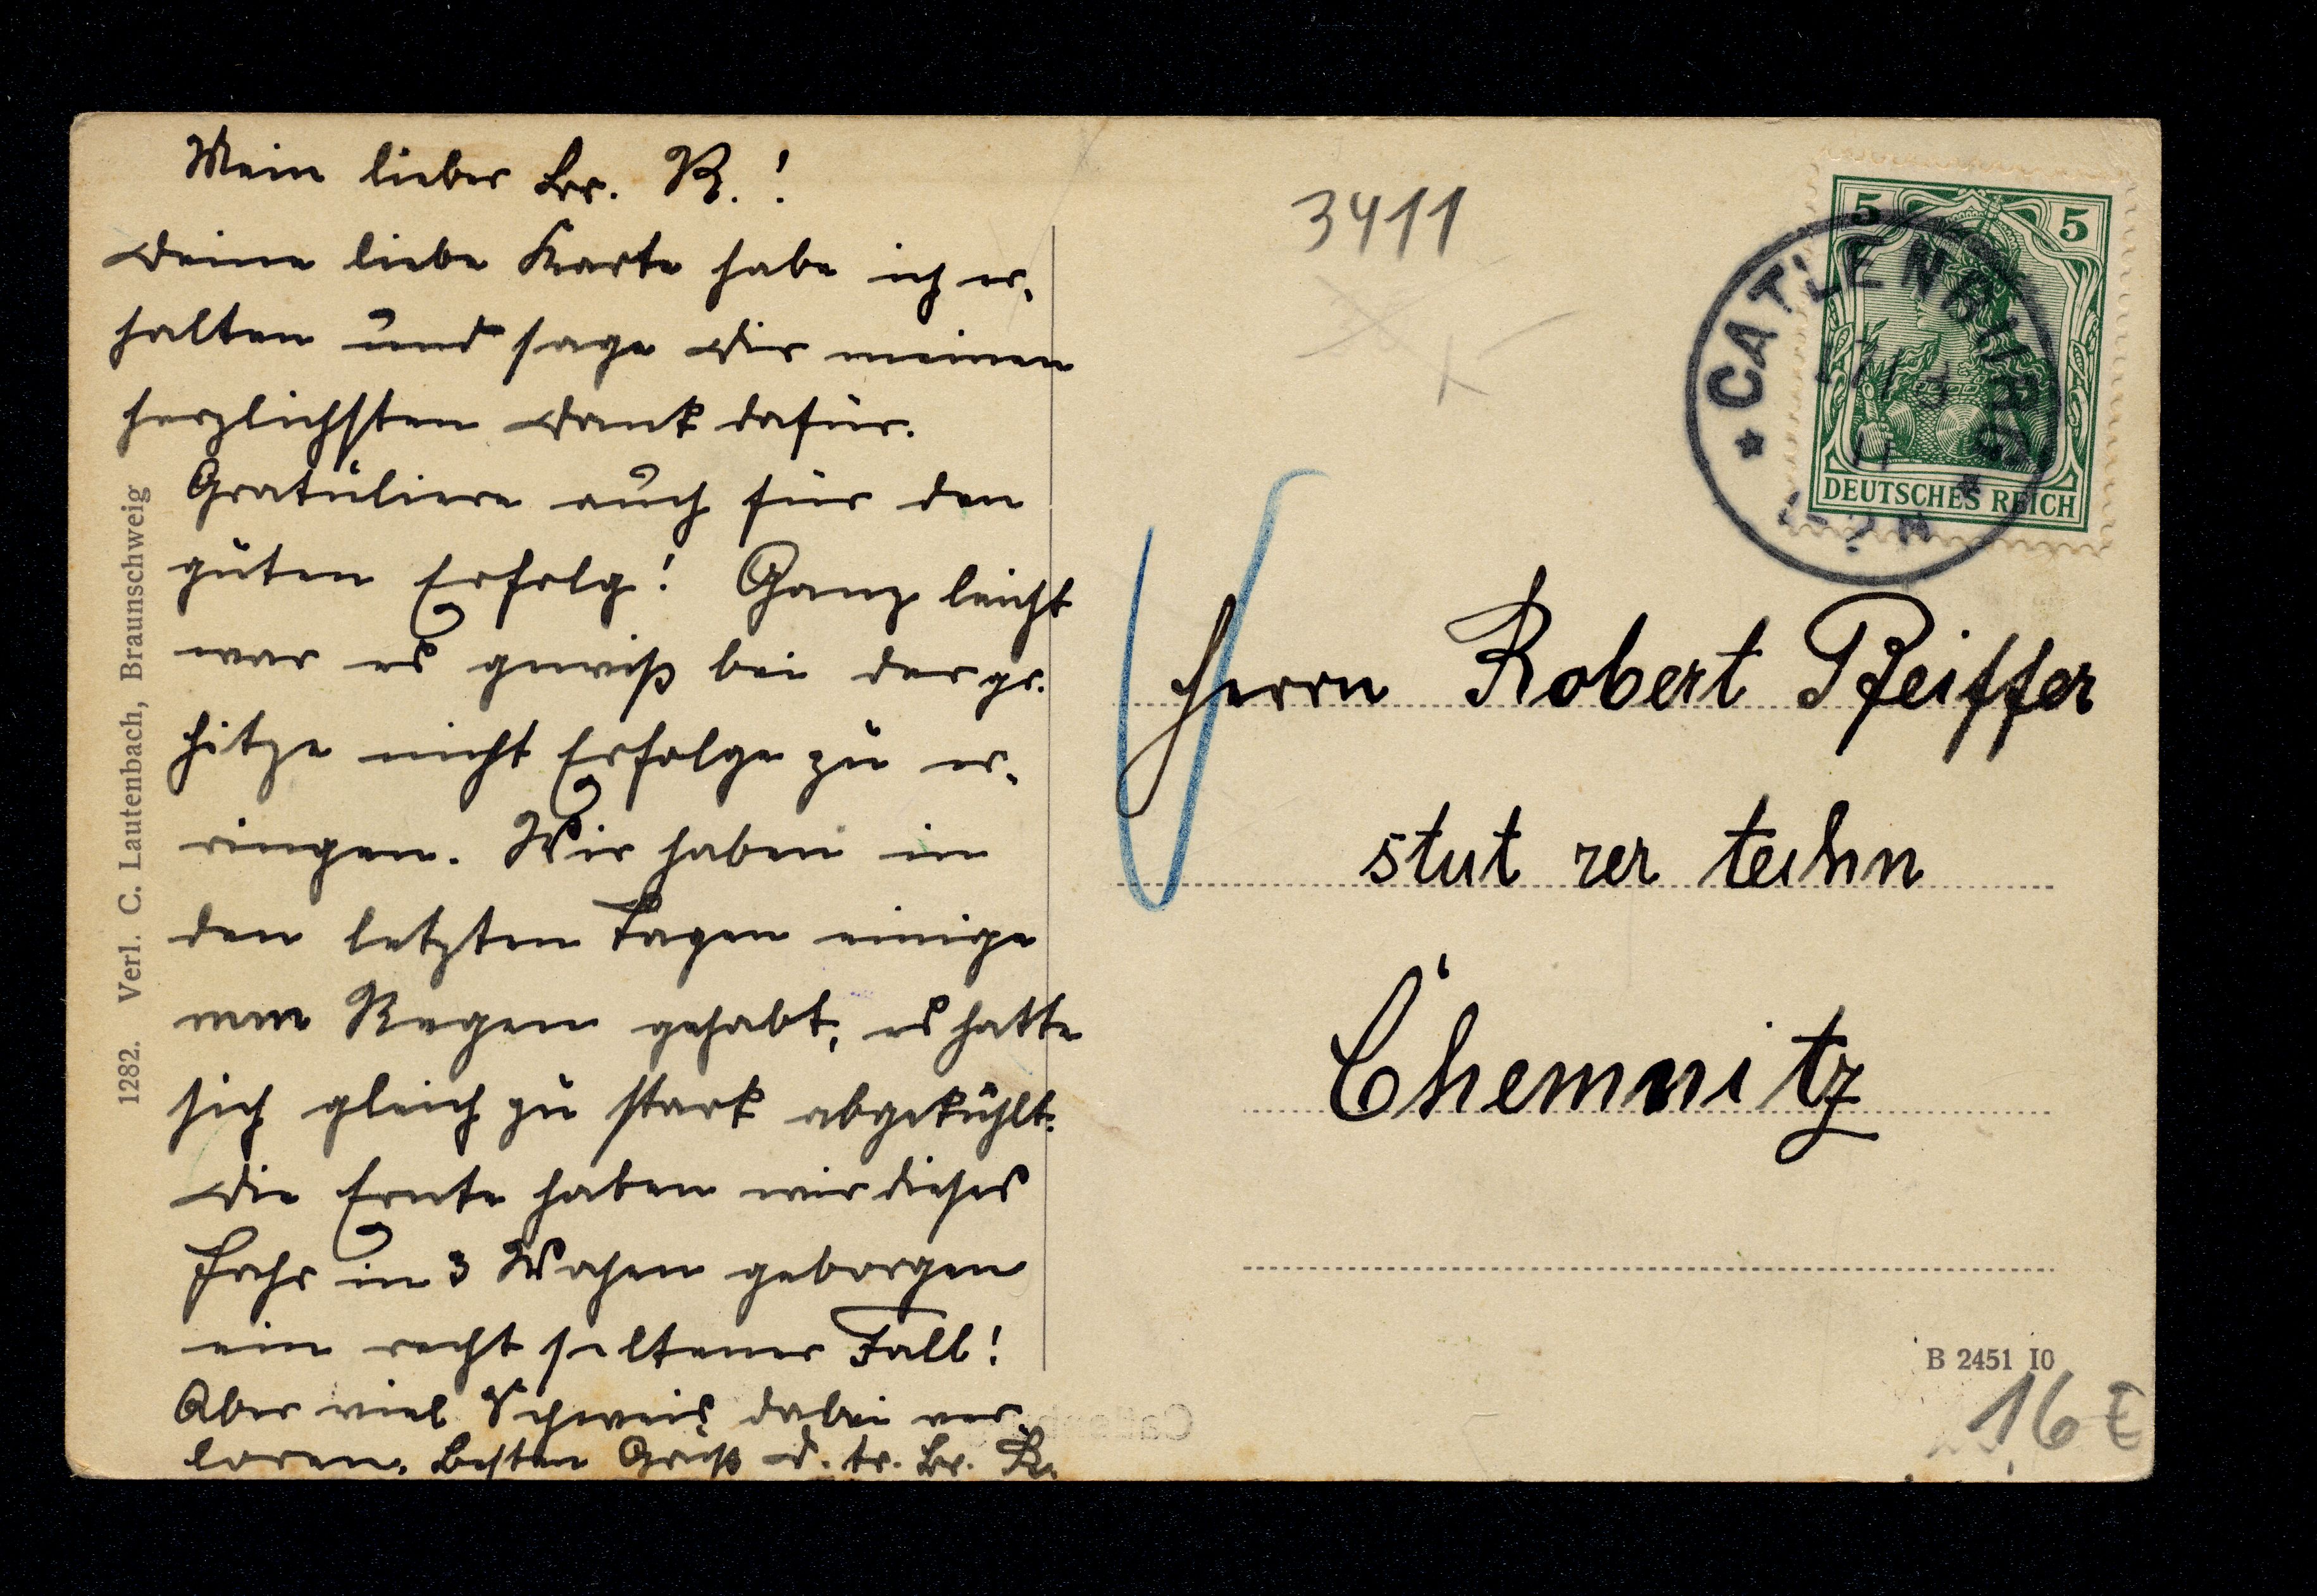 Mein lieber Br. R.!
Deine liebe Karte habe ich er-
halten und sage Dir meinen
herzlichsten Dank dafür.
Gratuliere auch für den
guten Erfolg! Ganz leicht
war es gewiß bei der gr.
Hitze nicht Erfolge zu er-
ringen. Wir haben in
den letzten Tagen einige
mm Regen gehabt, es hatte
sich gleich zu stark abgekühlt.
Die Ernte haben wir dieses
Jahr in 3 Wochen geborgen
ein recht seltener Fall!
Aber viel Schweiß dabei ver-
loren. Besten Gruß D. tr. Br. R.
1282. Verl. C. Lautenbach, Braunschweig
3411
5 5
DEUTSCHES REICH
* CATLENBURG *
Herrn Robert Pfeiffer
stut rer techn
Chemnitz
B 2451 10
16 €